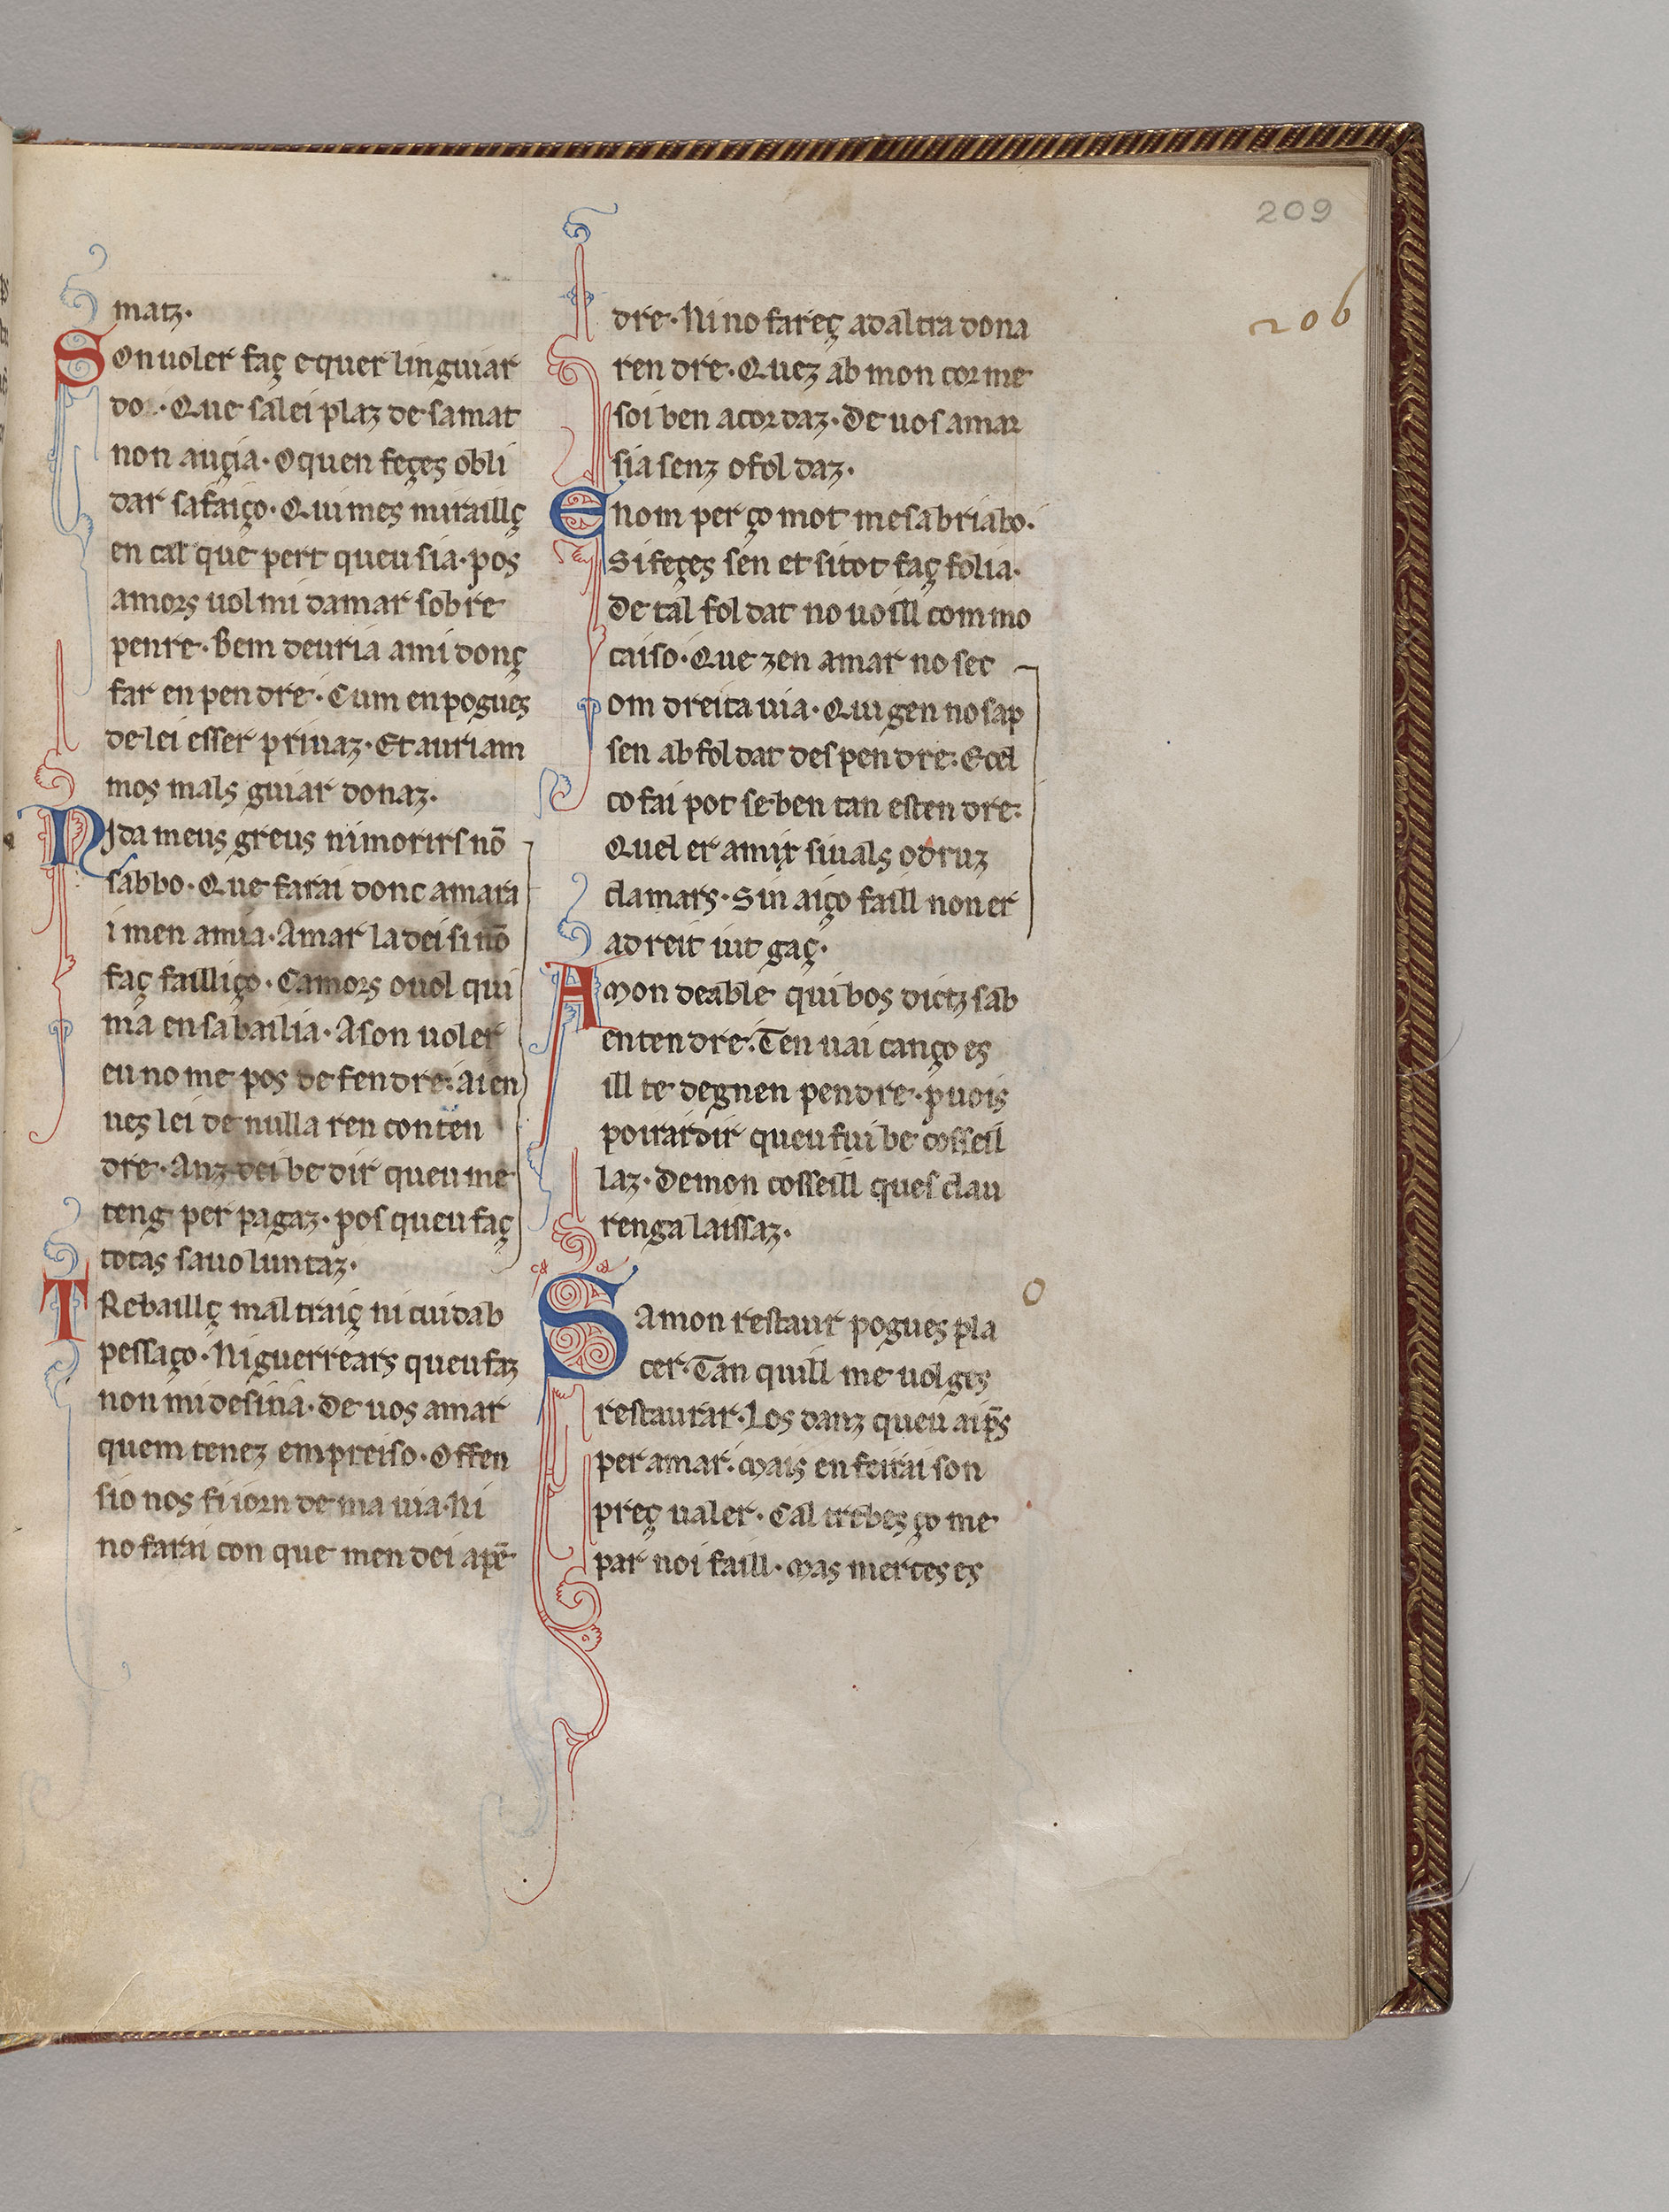 209
206
matz.
Son uoler faç e quer linguiar
do. Que sa lei plaz de samat
non augia. O quen feçes obli
dar sa faiço. Qui mes miraillç
en cal que pert queu sia. pos
amors uol mi damar sobre
penre. Bem deuria ami donç
far en pendre. Cum en pogues
de lei esser priuaz. Et auriam
mos mals guiar donaz.
Ni da meus greus ni morirs nō
sabbo. Que farai donc amara
i men amia. Amar la dei si nō
faç failliço. Camors o uol qui
ma en sa bailia. A son uoler
eu no me pos defendre. Ai en
ues lei de nulla ren conten
dre. Anz dei be dir queu me
teng per pagaz. pos queu faç
totas sa uoluntaz.
TRebaillç mal traiç ni cuidab
pessaço. Ni guerrears queu faz
non mi desuia. De uos amar
quem tenez empreiso. Offen
sio nos fi iorn de ma uia. Ni
no farai con que men dei apē
dre. Ni no fareç ad altra dona
ren dre. Quez ab mon cor me
soi ben acordaz. De uos amar
sia senz o foldaz.
Enom per ço mot mesabriabo.
Si feçes sen et si tot faç folia.
De tal foldat no uoill com mo
caiso. Que zen amar no sec
om dreita uia. Qui gen no sap
sen ab foldat despendre. E cel
co fai pot se ben tan estendre.
Quel er amix siuals o druz
clamars. Si in aiço faill non er
a dreit iutgaç.
A mon deable qui bos dictz sab
entendre. Ten uai canço es
ill te degnen pendre. puois
poirar dir queu fui be cosseil
laz. De mon cosseill ques clau
renga laissaz.
Sa mon restaur pogues pla
cer. Tan quill me uolges
restaurar. Los danz queu ai pͬs
per amar. Mais en feirai son
preç ualer. Cal trebes ço me
par noi faill. Mas merces es